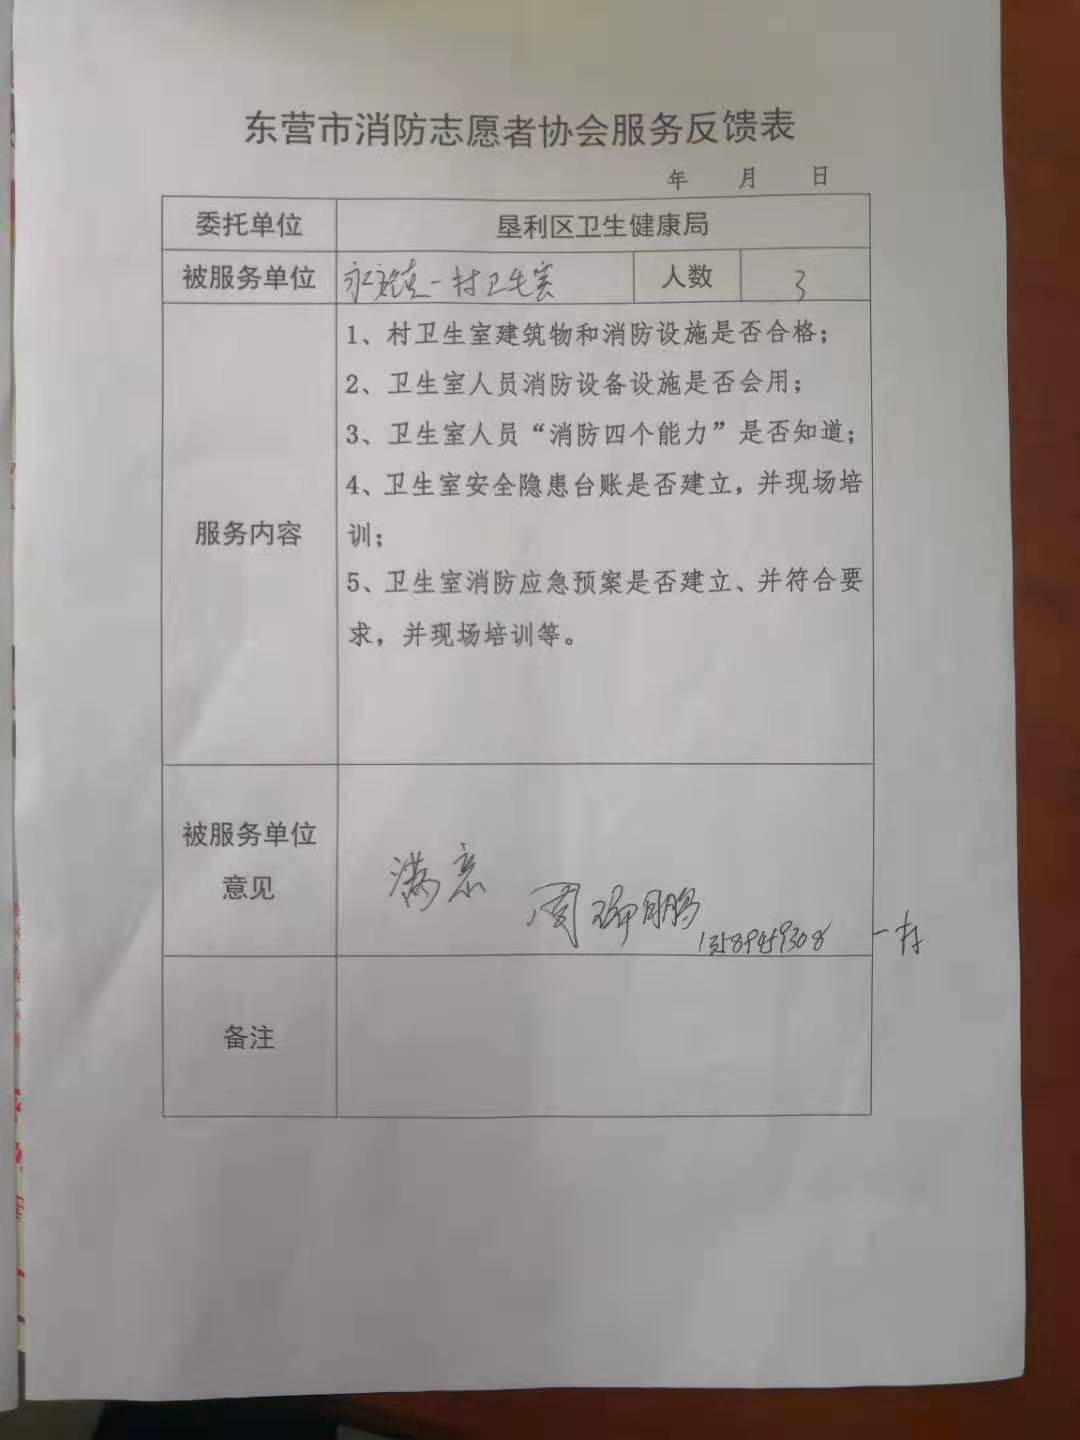 东营市消防志愿者协会服务反馈表
年 月 日
委托单位 垦利区卫生健康局
被服务单位 永安镇一村卫生室 人数 3
1、村卫生室建筑物和消防设施是否合格；
2、卫生室人员消防设备设施是否会用；
3、卫生室人员“消防四个能力”是否知道；
4、卫生室安全隐患台账是否建立，并现场培
服务内容
训；
5、卫生室消防应急预案是否建立、并符合要
求，并现场培训等。
被服务单位
意见
满意
周 鹏
13589459308 一村
备注